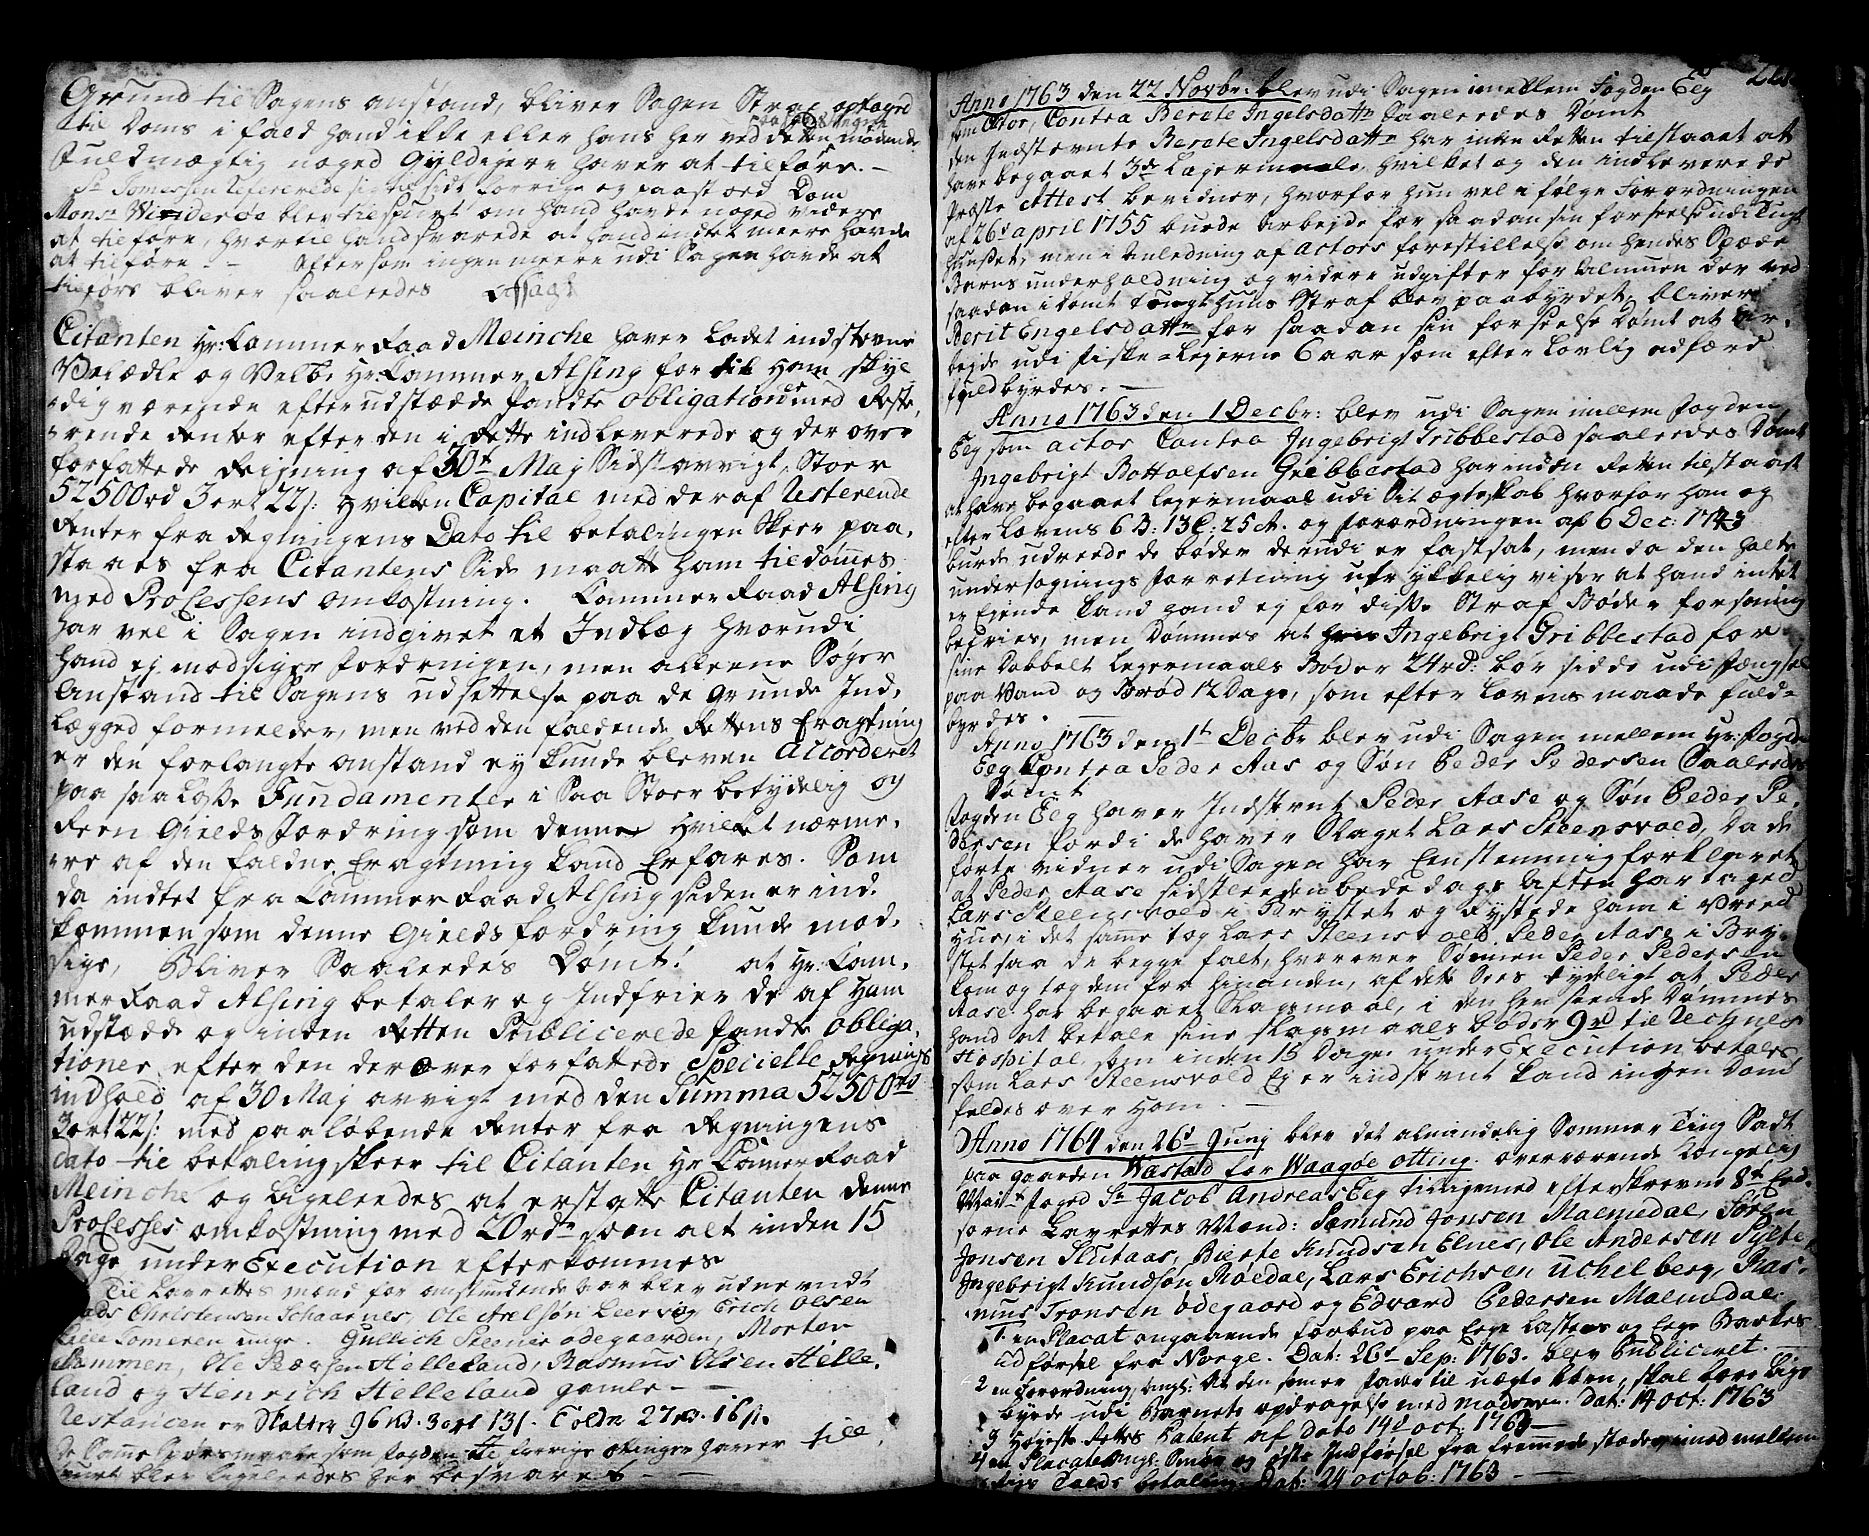 Grund til Sagens anstand, bliver Sagen Strax optaged
til Doms i fald hand ikke eller hans her ved Retten mødende
Fuldmægtig noged Gyldigere haver at tilføre. -
Sr Tomessen refererede sig til sidt forrige og paastod Dom
Monsr Winderøe blev tilspurt om hand havde noged videre
at tilføre, hvortil hand svarede at hand indtet meere havde
at tilføre - - Eftersom ingen meere udi Sagen havde at
tilføre bliver saaleedes afsagt
Citanten Hr: Cammer Raad Meinche haver ladet indstevne
Velædle og Velb: Hr: Cammer Alsing for til Ham skyl
dig værende efter udstædde Pandte obligationer med Reste,
rende Renter efter den i Rette indleverede og der over
forfattede Reigning af 30te Maj Sidst avvigt, Stoer
52500rd 3 ort 22s: hvilken Capital med deraf Resterende
Renter fra Regningens Dato til betalingen Skeer paa,
staaes fra Citantens Side maatte Ham tildømmes
med Processens omkostning. Cammer Raad Alsing
har vel i Sagen indgivet et Indlæg hvorudi
hand ej modsiger fordringen, men alleene Søger
Anstand til Sagens udsettelse paa de Grunde Ind,
lægged formelder, men ved den faldende Rettens Eragtning
er den forlangte anstand ey kunde bleven Accorderet
paa saa Løsse Fundamenter i Saa Stoer betydelig og
Reen Gields fordring som denne hvilket nærme,
ere af den faldne Eragtning kand Erfares. Som
da indtet fra Cammer Raad Alsing siden er ind,
kommen som denne Gields fordring kunde mod,
sige, Bliver Saaleedes Dømt! at Hr: Cam,
mer Raad Alsing betaler og Indfrier de af Ham
udstædde og inden Retten Publicerede Pandte obliga,
tioner efter den derover forfattede Specielle Regnings
indhold af 30 Maj avvigt med den Summa 52500rd
3 ort 22s: med paaløbende Renter fra Regningens
dato til betaling skeer til Citanten Hr Cammer Raad
Meinche og ligeleedes at erstatte Citanten denne
Processes omkostning med 20rdr som alt inden 15
Dage under Execution efterkommes
Til Laurettes mænd for anstundende aar blev udnævndt
Mads Christensen Schaarnes, Ole Axelsøn Leervog Erich Olsen
Lille Someren unge. Gullich Steenes ødegaarden, Morten
Hammen, Ole Pedersen Helleland, Rasmus Olsen Helle,
land og Henrich Helleland gamle - -
Restancen er Skatter 96rd. 3 ort 13s. Told 27rd. 16s.
De samme Spørsmaale som fogden til forrige otinger haver till,
giort blev ligeleedes her besvaret - -
Anno 1763 den 22 Novbr: blev udi Sagen imellem Fogden Eeg
som Actor, Contra Berete Ingelsdatter saaleedes Dømt
den Indstevnte Berete Ingelsdatter har inden Retten tilstaaet at
have begaaet 3de Lejermaale, hvilket og den indleverede
Præste Attest bevidner, hvorfor hun vel i følge forordningen
af 26de april 1755 burde arbejde for saadan sin forseelse udi tugt
huuset, men i anledning af Actors forestillelse om hendes Spæde
Barns underholdning og videre udgifter for Almuen der ved
saadan i Dømt Tugthuus Straf blev paabyrdet, bliver
Berit Engelsdatter for saadan sin forseelse Dømt at ar,
bejde udi Fiske-Lejerne 6 aar som efter Lovlig adfærd
fuldbyrdes. -
Anno 1763 den 1 Decbr: blev udi Sagen imellem Fogden
Eeg som actor Contra Ingebrigt Gribbestad saaleedes Dømt
Ingebrigt Bottolfsen Gribbestad har inden Retten tilstaaet
at have begaaet lejermaal udi Sit ægteskab hvorfor han og
efter Lovens 6 B: 13 C: 25 A. og forordningen af 6 Dec: 1743
burde udreede de bøder derudi er fastsat, men da den holte
undersøgnings forretning udtrykkelig viser at hand intet
er Ejende kand hand ej for disse Straf Bøder forsoning
befries, men Dømmes at Ingebrigt Gribbestad for
sine Dobbelt Lejermaals Bøder 24rd: bør sidde udi fængsel
paa Vand og Brød 12 Dage, som efter Lovens maade fuld-
byrdes.
Anno 1763 den 1te Decbr blev udi Sagen mellem Hr: Fogden
Eeg Contra Peder Aas og Søn Peder Pedersen Saaleedes
Dømt
Fogden Eeg haver Indstevnt Peder Aase og Søn Peder Pe,
dersen fordi de haver Slaget Lars Steensvold, Da de
førte vidner udi Sagen har Eenstemmig forklaret
at Peder Aase sidstleeden bededags Aften har taged
Lars Steensvold i Brystet og Rystede ham i Vreed
Hue, i det samme tog Lars Steensvold Peder Aase i Bry,
stet saa de begge falt, hvorover Sønnen Peder Pedersen
kom og tog dem fra hinanden, af dette Sees tydeligt at Peder
Aase har begaaet Slagsmaal, i den henseende Dømmes
hand at betale sine slagsmaals bøder 9rd til Rechnes
Hospital, som inden 15 Dage under Execution betales,
som Lars Steensvold Ej er indstevnt kand ingen Dom
feldes over Ham. -
Anno 1764 den 26de Junj blev det almindelig Sommer Ting Sadt
paa gaarden Wastad for Waagøe otting. overværende Kongelig
Maits Foged Sr Jacob Andreas Eeg tilligemed efterskrevne 8te Eed,
sorne Laurettes Mænd: Samund Jonsen Malmedal, Søren
Jonsen Slutaas, Bierte Knudsen Elnes, Ole Andersen Sylte,
Ingebrigt Knudsøn Røedal, Lars Erichsen Uchelberg, Ras-
mus Tronsen ødegaard og Edvard Pedersen Malmedal
1. en Placat angaaende forbud paa Ege Lastens og Ege Barkes
udførsel fra Norge. Dat: 26de Sep: 1763. blev Publiceret. -
2 en forordning, angl: At den som er fader til uægte børn, skal bære lige
byrde udi Barnets opdragelse med moderen. Dat: 14 oct: 1763
3 Høyeste Rettes Patent af dato 14de oct: 1763 -
4 en Placat angl: Smør og øste Indførsel fra fremmede steder imod mellem
Told betaling. Dat: 24 octob: 1763 - -